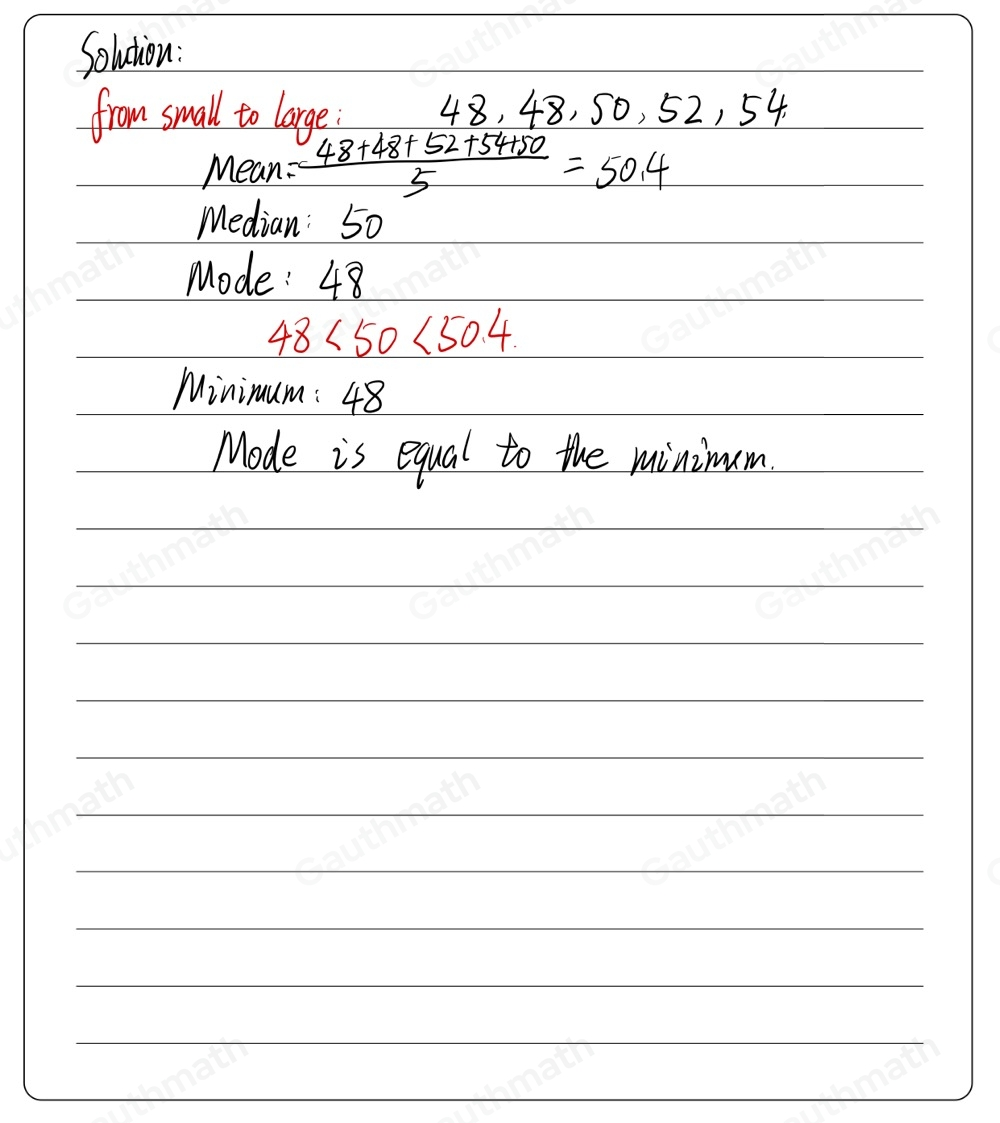 Solution:
from small to large: 48, 48, 50, 52, 54.
Mean = \frac{48+48+52+54+50}{5} = 50.4
Median: 50
Mode: 48
48 < 50 < 50.4.
Minimum: 48
Mode is equal to the minimum.
Gauthmath